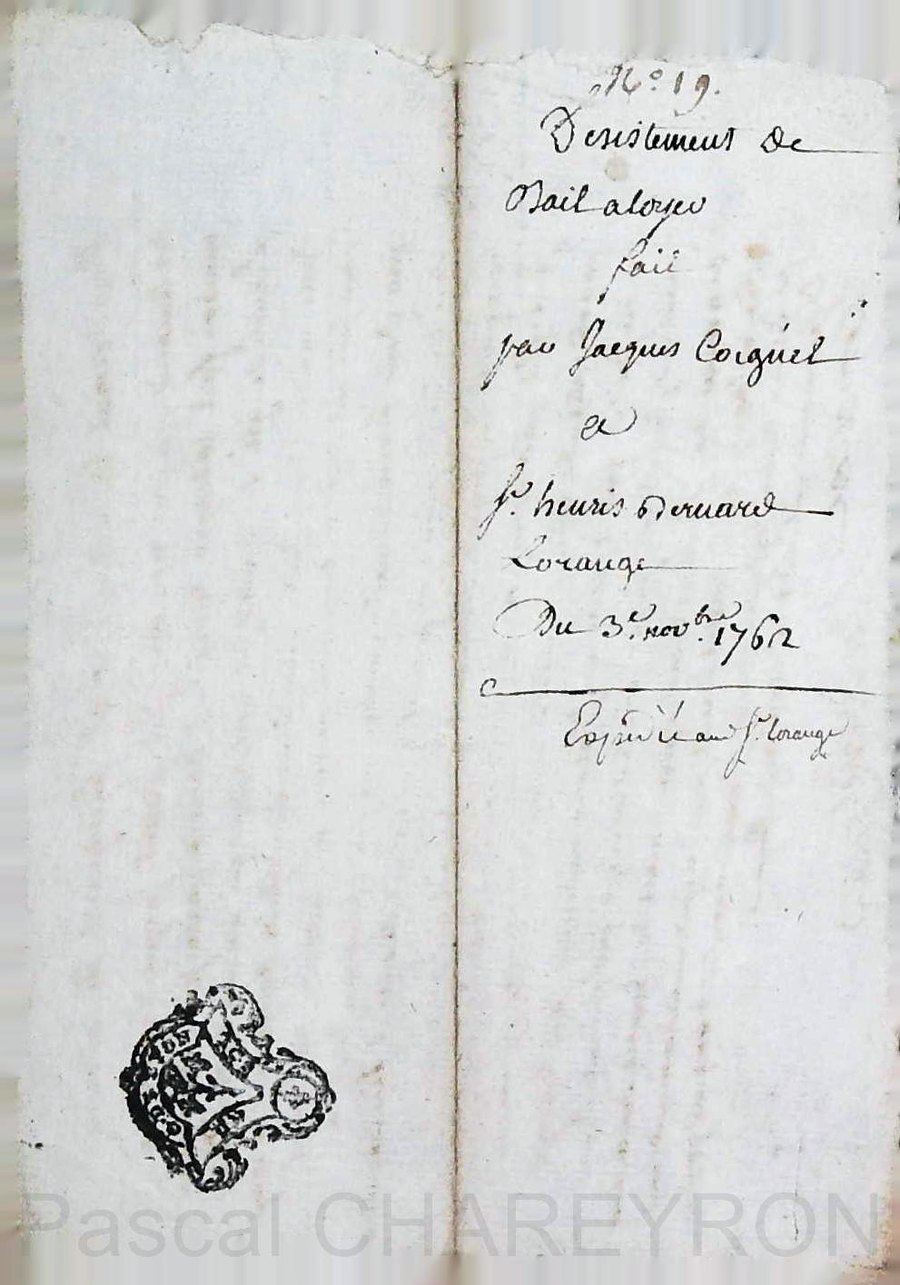 N.º 19.
Desistement de
Bail a loyer
fait
par Jacques Coignet
a
S.r henris Bernard
Lorange
Du 3.e nov.bre 1762
Expédié aud S.r lorange
Pascal CHAREYRON